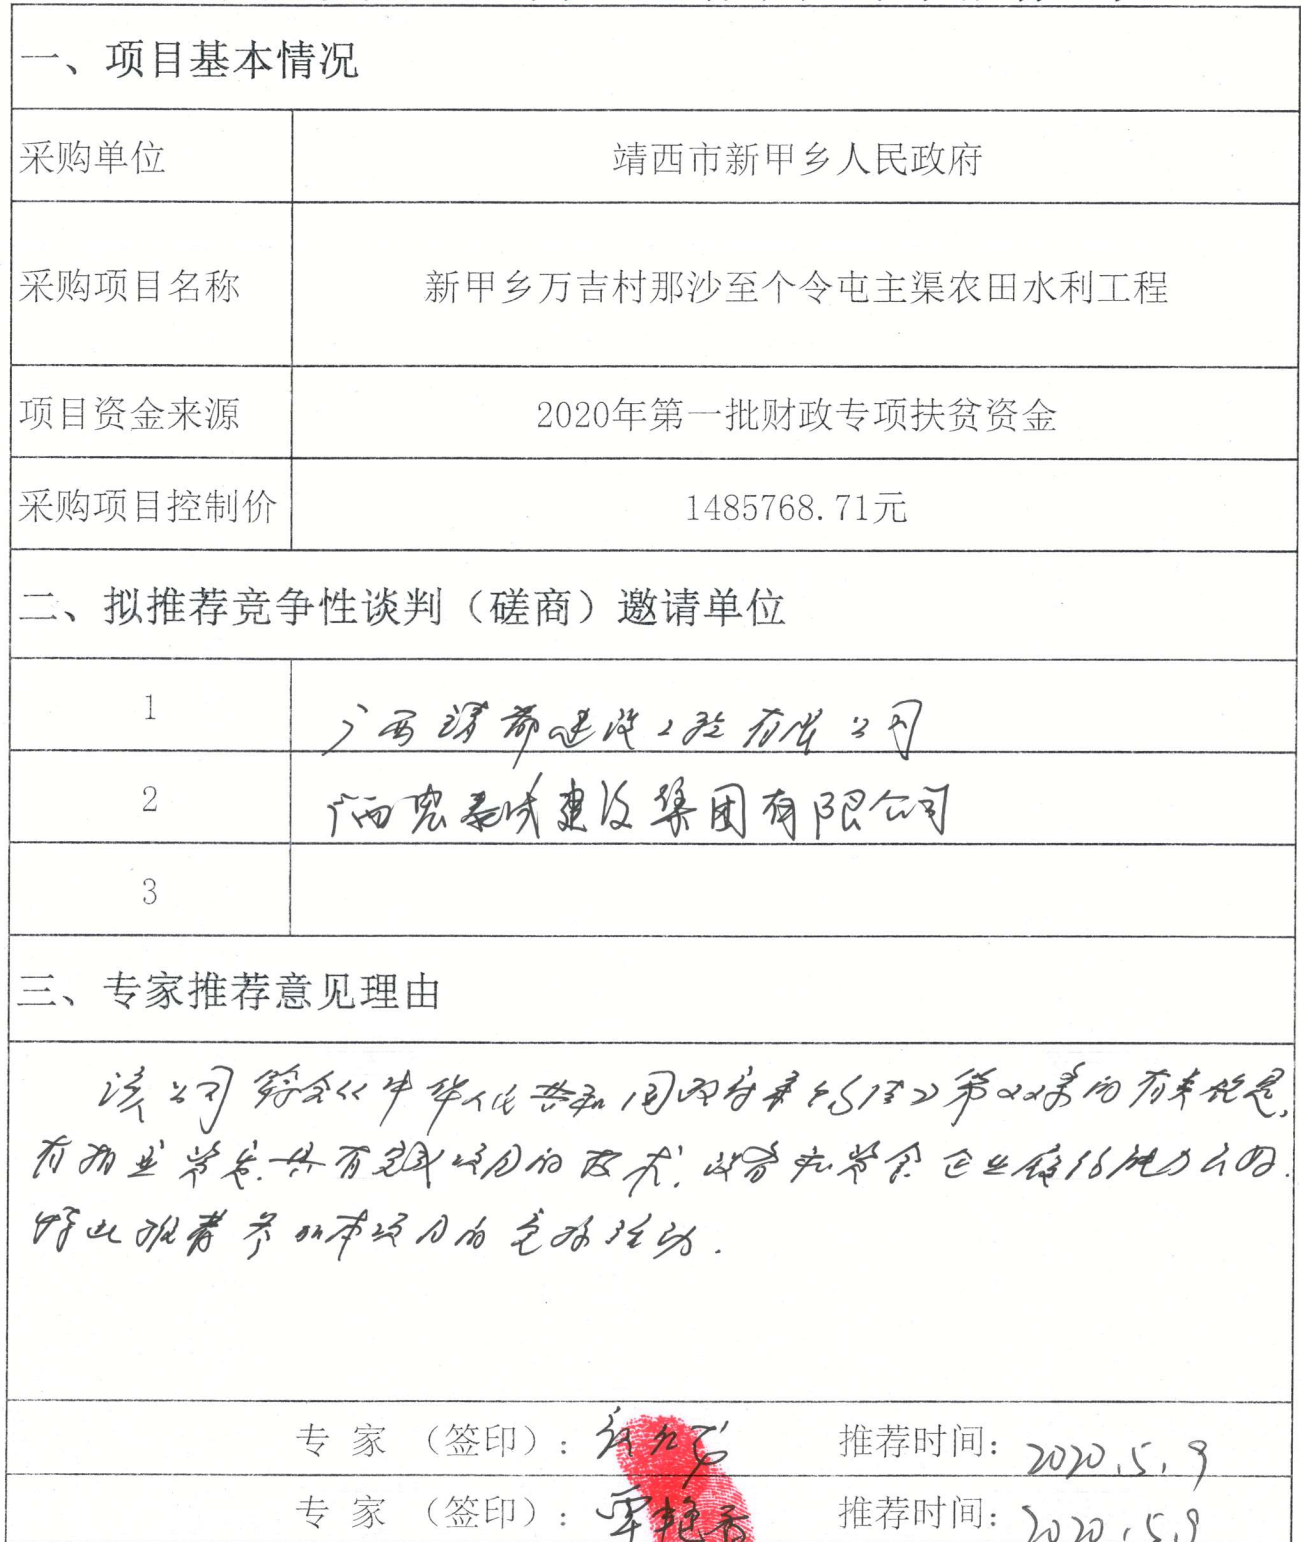 一、项目基本情况
采购单位 靖西市新甲乡人民政府
采购项目名称 新甲乡万吉村那沙至个令屯主渠农田水利工程
项目资金来源 2020年第一批财政专项扶贫资金
采购项目控制价 1485768.71元
二、拟推荐竞争性谈判（磋商）邀请单位
1 广西靖都建设工程有限公司
2 广西宏泰成建设集团有限公司
3
三、专家推荐意见理由
该公司符合《中华人民共和国政府采购法》第22条的有关规定,
有相应资质.具有完成项目的技术.设备和资金 企业履约能力良好.
特此推荐参加本项目的竞标活动.
专 家 （签印）: 推荐时间: 2020.5.9
专 家 （签印）: 覃艳香 推荐时间: 2020.5.9